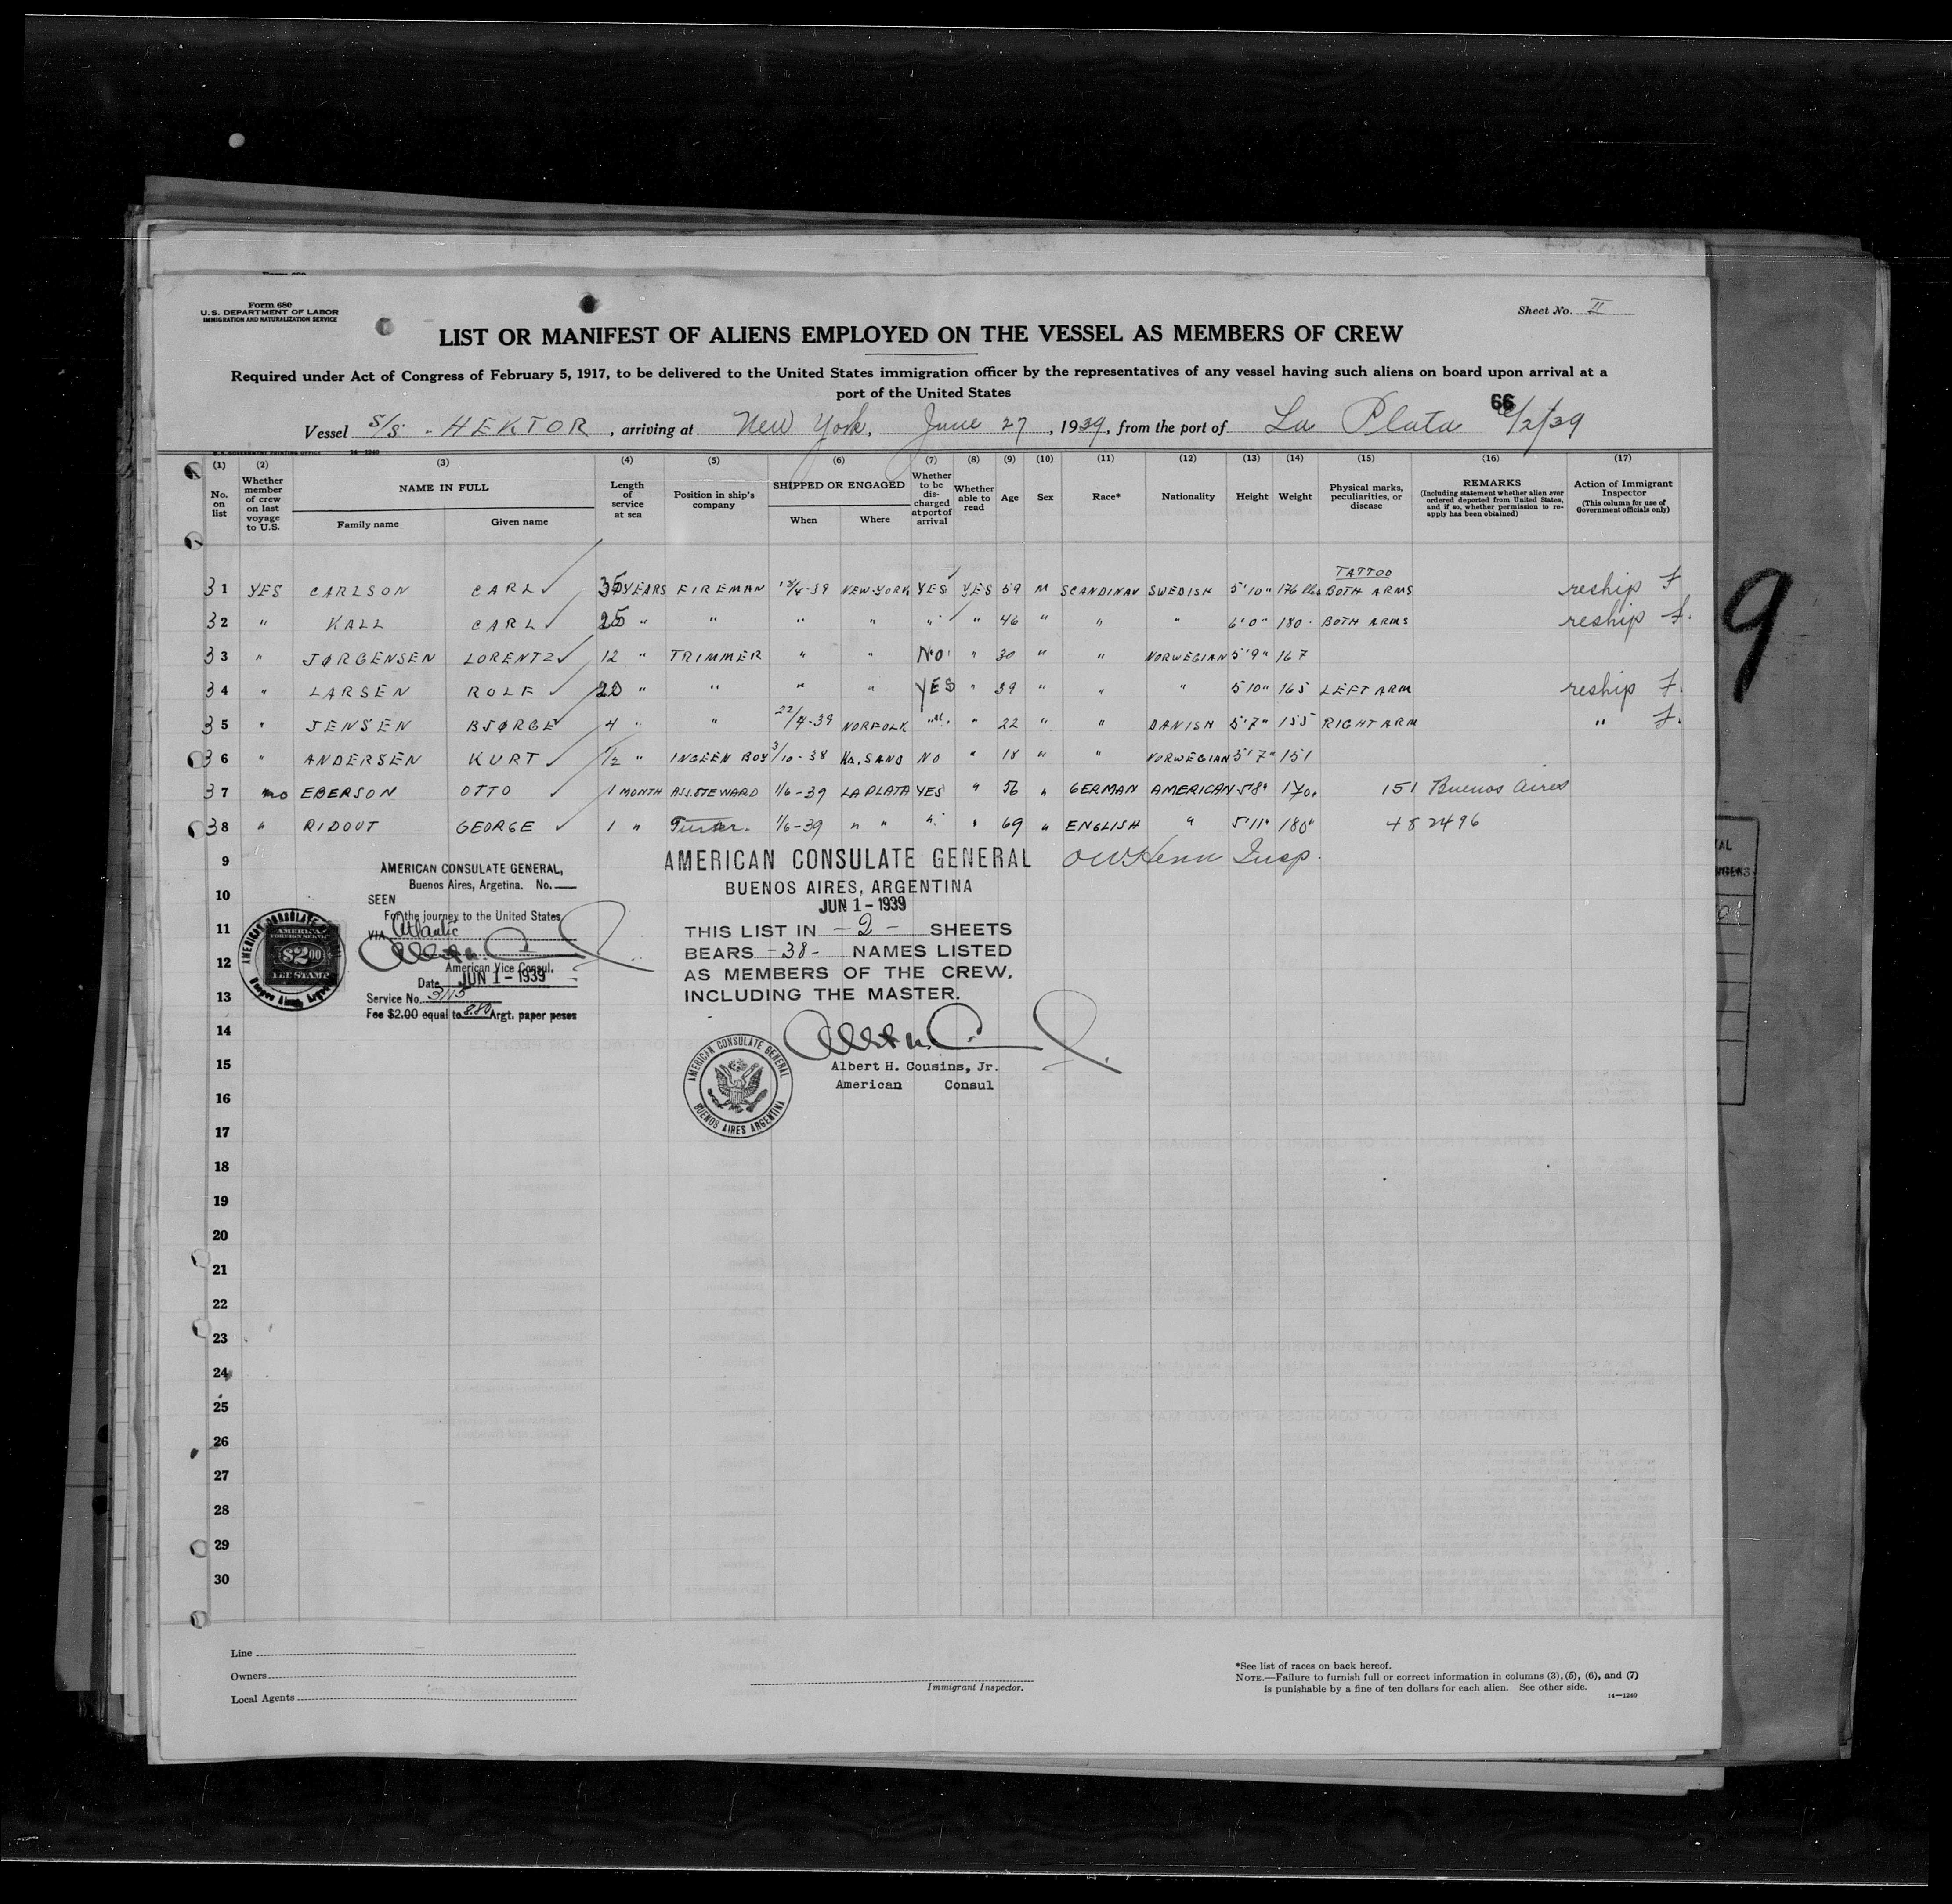 Form 680
U.S. DEPARTMENT OF LABOR
IMMIGRATION AND NATURALIZATION SERVICE
Sheet No. II
LIST OR MANIFEST OF ALIENS EMPLOYED ON THE VESSEL AS MEMBERS OF CREW
Required under Act of Congress of February 5, 1917, to be delivered to the United States immigration officer by the representatives of any vessel having such aliens on board upon arrival at a
port of the United States
66
Vessel S/S. - HEKTOR, arriving at New York, June 27, 1939, from the port of La Plata 6/2/39
U.S. GOVERNMENT PRINTING OFFICE 14-1240
(1) (2) (3) (4) (5) (6) (7) (8) (9) (10) (11) (12) (13) (14) (15) (16) (17)
No. on list
Whether member of crew on last voyage to U.S.
NAME IN FULL
Family name
Given name
Length of service at sea
Position in ship's company
SHIPPED OR ENGAGED
When
Where
Whether to be discharged at port of arrival
Whether able to read
Age
Sex
Race*
Nationality
Height
Weight
Physical marks, peculiarities, or disease
REMARKS
(Including statement whether alien ever ordered deported from United States, and if so, whether permission to re-apply has been obtained)
Action of Immigrant Inspector
(This column for use of Government officials only)
TATTOO
31 YES CARLSON CARL 35 YEARS FIREMAN NEW-YORK YES YES 59 M SCANDINAV SWEDISH 5'10" 176 lbs BOTH ARMS reship F
32 " KALL CARL 25 " " " " " " 46 " " " 6'0" 180 BOTH ARMS reship F.
33 " JØRGENSEN LORENTZ 12 " TRIMMER " " NO " 30 " " NORWEGIAN 5'9" 167
34 " LARSEN ROLF 20 " " " " YES " 39 " " " 5'10" 165 LEFT ARM reship F.
35 " JENSEN BJØRGE 4 " " 22/4-39 NORFOLK " " 22 " " DANISH 5'7" 155 RIGHT ARM " F.
36 " ANDERSEN KURT 1/2 " INGEEN BOY 3/10-38 KR.SAND NO " 18 " " NORWEGIAN 5'7" 151
37 no EBERSON OTTO 1 MONTH ASS.STEWARD 1/6-39 LA PLATA YES " 56 " GERMAN AMERICAN 5'8" 170. 151 Buenos Aires
38 " RIDOUT GEORGE 1 " 1/6-39 " " " " 69 " ENGLISH " 5'11" 180" 482496
9 AMERICAN CONSULATE GENERAL Insp.
BUENOS AIRES, ARGENTINA
JUN 1-1939
THIS LIST IN -2- SHEETS
BEARS -38- NAMES LISTED
AS MEMBERS OF THE CREW,
INCLUDING THE MASTER.
Albert H. Cousins, Jr.
American Consul
AMERICAN CONSULATE GENERAL
BUENOS AIRES ARGENTINA
AMERICAN CONSULATE GENERAL,
Buenos Aires, Argetina. No.
SEEN
For the journey to the United States
VIA Atlantic
American Vice Consul.
Date JUN 1-1939
Service No. 3113
Fee $2.00 equal to 8.80 Argt. paper pesos
AMERICAN
FOREIGN SERVICE
$2.00
FEE STAMP
10
11
12
13
14
15
16
17
18
19
20
21
22
23
24
25
26
27
28
29
30
Line
Owners
Local Agents
Immigrant Inspector.
*See list of races on back hereof.
NOTE.—Failure to furnish full or correct information in columns (3), (5), (6), and (7)
is punishable by a fine of ten dollars for each alien. See other side.
14-1240
9